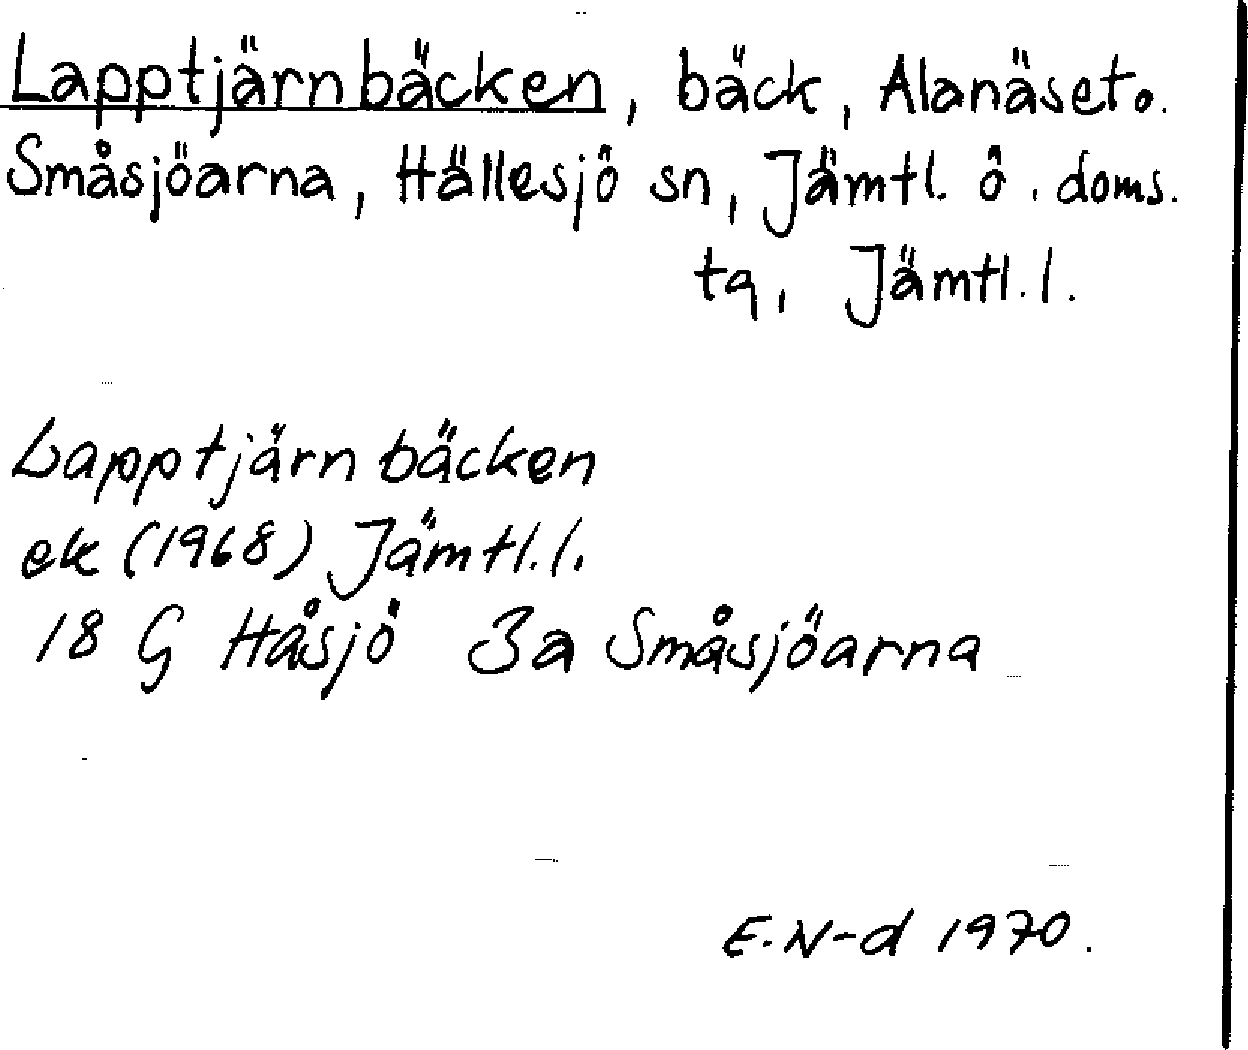 Lapptjärnbäcken, bäck, Alanäset o.
Småsjöarna, Hällesjö sn, Jämtl. ö. doms.
tg, Jämtl. l.
Lapptjärnbäcken
ek (1968) Jämtl. l.
18 G Håsjö 3a Småsjöarna
E. N-d 1970.